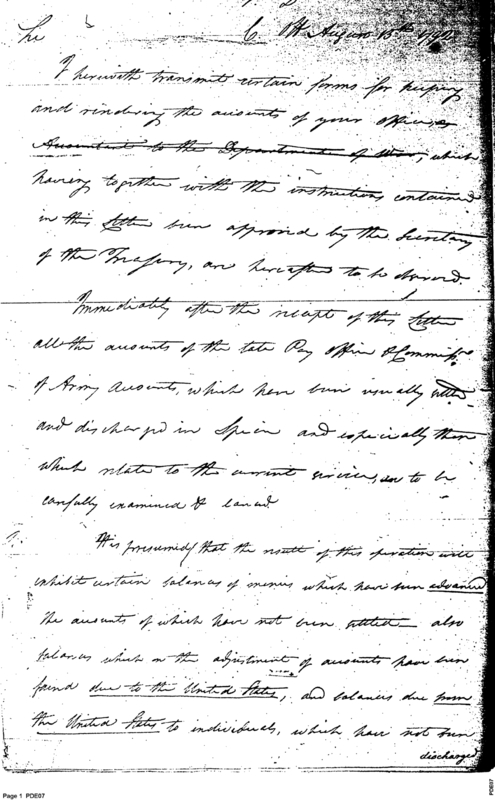 The C Off August 15th 1792
I herewith transmit certain forms for keeping
and rendering the accounts of your office, as
Accountant to the Department of War, which
having together with the instructions contained
in this Letter been approved by the Secretary
of the Treasury, are hereafter to be observed.
Immediately after the receipt of this Letter
all the accounts of the late Pay Office & Commissrs.
of Army Accounts, which have been usually settled
and discharged in Specie and especially those
which relate to the current service, are to be
carefully examined &
It is presumed that the result of this operation will
exhibit certain balances of monies which have been advanced
the accounts of which have not been settled also
balances which on the adjustment of accounts have been
found due to the United States, and balances due from
the United States to individuals, which have not been
discharged
Page 1 PDE07
PDE07